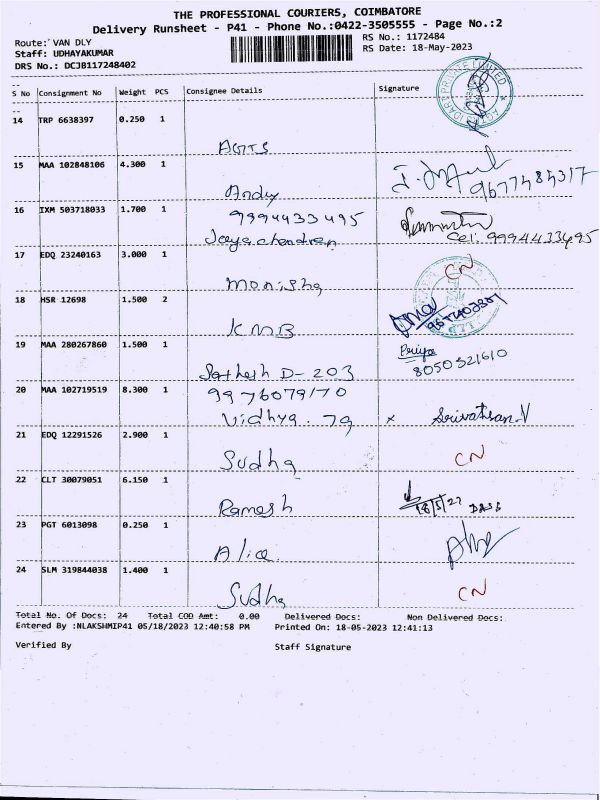 THE PROFESSIONAL COURIERS, COIMBATORE
Delivery Runsheet - P41 - Phone No.:0422-3505555 - Page No.:2
Route: VAN DLY
RS No.: 1172484
Staff: UDHAYAKUMAR
RS Date: 18-May-2023
DRS No.: DCJB117248402
S No Consignment No Weight PCS Consignee Details Signature
14 TRP 6638397 0.250 1
AGTS
15 MAA 102848106 4.300 1
Andy
9677484317
16 IXM 503718033 1.700 1
9994433495
Jayachandran
Cel: 9994433495
17 EDQ 23240163 3.000 1
Monisha
CN
18 HSR 12698 1.500 2
KMB
19 MAA 280267860 1.500 1
Priya
8050321610
Sathesh D-203
20 MAA 102719519 8.300 1
9976079170
Vidhya. 79 x Srivathsan.V
21 EDQ 12291526 2.900 1
Sudha
CN
22 CLT 30079051 6.150 1
Ramesh
18/5/23
23 PGT 6013098 0.250 1
Alice
24 SLM 319844038 1.400 1
Sudha
CN
Total No. Of Docs: 24 Total COD Amt: 0.00 Delivered Docs: Non Delivered Docs:
Entered By :NLAKSHMIP41 05/18/2023 12:40:58 PM Printed On: 18-05-2023 12:41:13
Verified By Staff Signature